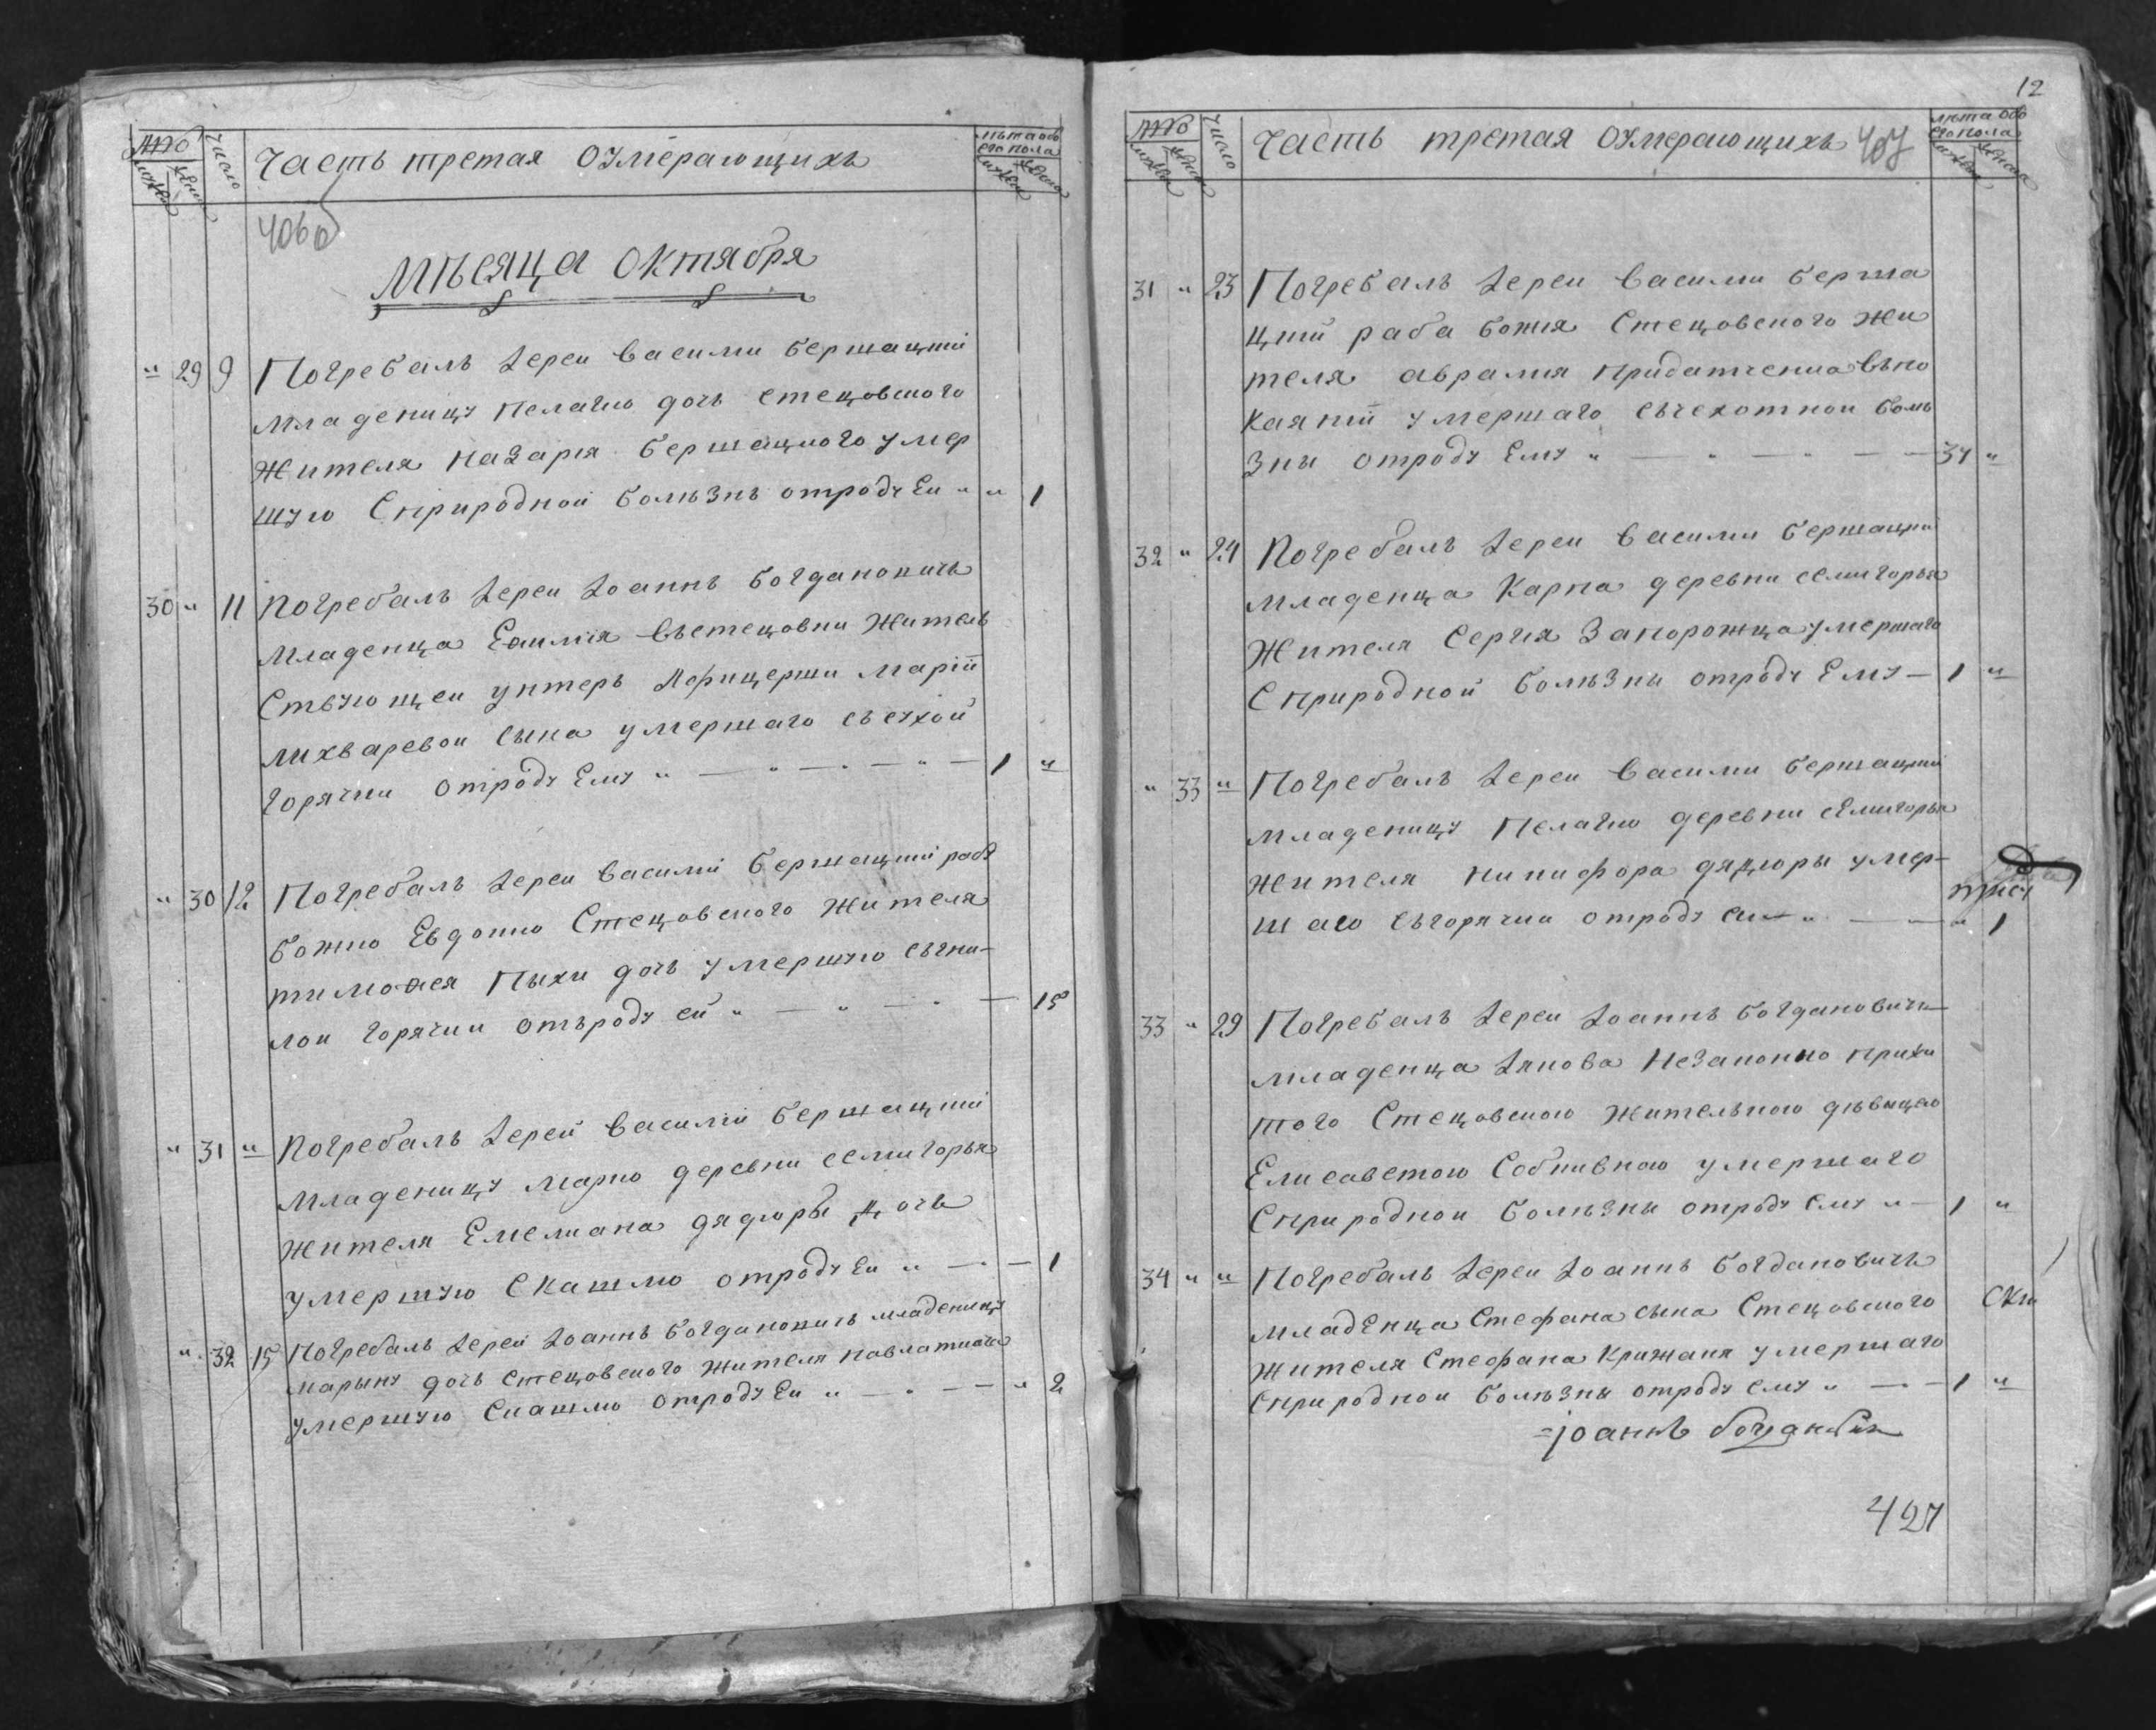 Число
Часть третая оумерающихъ
лѣта обо
его пола
406 об
Мѣсяца Октября
" 29 9 Погребалъ Іереи Васили Бершацкій
младеницу Пелагію дочь Стецовского
жителя Назарія Бершацкого умер
шую Сприродной болѣзнь отроду Еи " " 1
30 " 11 Погребалъ Іереи Іоаннъ Богдановичь
младенца Евѳимія Встецовки житель
Ствующеи унтеръ Аофицерши Маріи
Лихваревои сына умершаго съсухой
горячки отроду Ему " — " — " — " — 1 "
" 30 12 Погребалъ Іереи Василій Бершацкій рабу
божию Евдокию Стецовского жителя
тимоѳея Пыхи дочь умершую сгни-
лои горячки отъроду ей " — " — " — 15
" 31 " Погребалъ Іерей Василій Бершацкій
младеницу Марію деревни семигорья
жителя Емелиана дядюры дочь
умершую Скашлю отроду Еи " — " — 1
" 32 15 Погребалъ Іерей Іоаннъ Богдановичь младеницу
марыну дочь Стецовского жителя Павла
умершую Скашлю отроду Еи " — " — — " 2
12
Число
Часть третая оумерающихъ 407
лѣта обо
его пола
31 " 23 Погребалъ Іереи Васили Берша
цкій раба божия Стецовского жи
теля аврамия придатченка вѣпо
каяніи умершаго съчехотнои боль
зны отроду Ему " — " — " — — 34 "
32 " 24 Погребалъ Іереи Василии Бершацкий
младенца Карпа деревни семигорья
жителя Сергия Запорожца умершаго
Сприродной болѣзны отроду Ему — 1 "
" 33 " Погребалъ Іереи Василии Бершацкий
младеницу Пелагию деревни семигорья
жителя никифора дядюры умер-
шаю съгорячки отроду еи — " — — " 1
33 " 29 Погребалъ Іереи Іоаннъ Богдановичь
младенца Іякова Незаконно прижи
того Стецовскою жителькою дѣвицею
Елисаветою умершаго
Сприроднои болѣзны отроду Ему " — 1 "
34 " " Погребалъ Іереи Іоаннъ Богдановичь
младенца Стефана сына Стецовского
жителя Стефана Крижаня умершаго
Сприроднои болѣзны отроду ему " — — 1 "
Іоаннъ Богдановичь
427